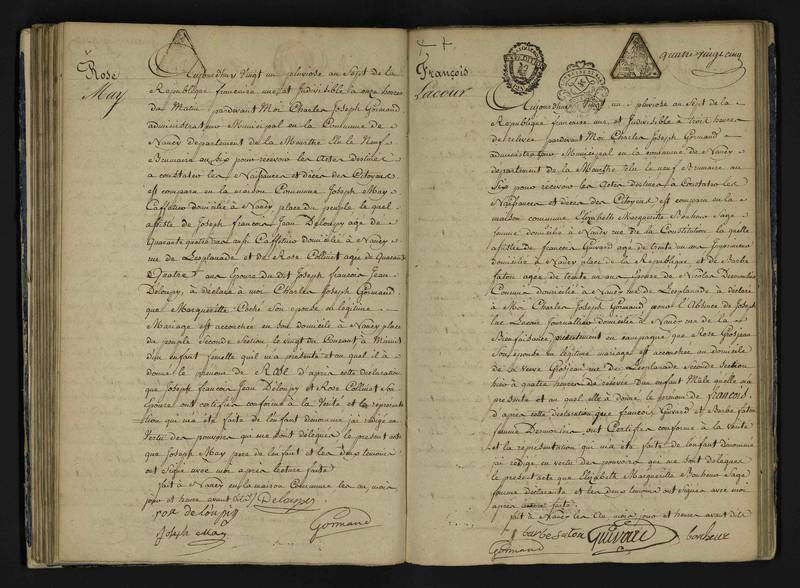 Rose
May
Aujourdhuy vingt un pluviose au Sept de la
Republique francoise une et Indivisible a onze heures
du Matin pardevant Moi Charles Joseph Gormand
administrateur Municipal en la Commune de
Nancy departement de la Meurthe Elu le Neuf
Brumaire an Six pour recevoir les Actes destinés
a constater les Naissances et décès des Citoyens
est comparu en la maison Commune Joseph May
Caffetier domicilié a Nancy place du peuple le quel
assisté de Joseph francois Jean Deloupy age de
Quarante quatre ans aussi Caffetier domicilié a Nancy
rue de Lesplanade et de Rose Collinet agée de Quarante
Quatre ans Epouse dudit Joseph francois Jean
Deloupy, à déclaré à moi Charles Joseph Gormand
que Marguerite Caché Son epouse en legitime
Mariage est accouchée en Son domicile a Nancy place
du peuple Seconde Section, le vingt du Courant à Minuit
d'un enfant femelle quil m'a presenté et au quel il à
donné le prenom de ROSE d'après cette declaration
que Joseph francois Jean Deloupy et Rose Collinet Son
Epouse ont certifiée conforme à la Verité et la représenta
tion qui m'a été faite de l'enfant denommé j'ai redigé en
Vertu des pouvoirs qui me sont délégués le present acte
que Joseph May pere de l'enfant et les deux temoins
ont Signé avec moi après lecture faite
fait à Nancy en la maison Commune les an, mois
jour et heure avant dits J Deloupy
rose deloupy
Joseph May
Gormand
quatre vingt cinq
François
Lacour
Aujourdhuy Vingt un pluviose au Sept de la
Republique francoise une et Indivisible à trois heures
de relevée pardevant Moi Charles Joseph Gormand
administrateur Municipal en la commune de Nancy
departement de la Meurthe Elu le neuf Brumaire an
Six pour recevoir les Actes destinés à Constater les
Naissances et decès des Citoyens est comparu en la
maison commune Elizabeth Marguerite Bonheur Sage
femme domiciliée à Nancy rue de la Constitution la quelle
assistée de francois Guivard age de trente un ans Imprimeur
domicilié a Nancy place de la Republique et de Barbe
faton agée de trente un ans Epouse de Nicolas
domiciliée a Nancy rue de Lesplanade à déclaré
à Moi Charles Joseph Gormand pour l'Absence de Joseph
Luc Lacour domicilié a Nancy rue de la
Bienfaisance presentement en campagne que Rose Grosjean
Son epouse en legitime mariage est accouchée au domicile
de la Veuve Grosjean rue de Lesplanade Seconde Section
hier à quatre heures de relevée d'un enfant Male quelle m'a
presenté et au quel elle à donné le prenom de françois.
d'apres cette declaration que francois Guivard et Barbe faton
femme ont Certifiée conforme à la Verité
et la représentation qui m'a été faite de l'enfant denommé
j'ai redigé en vertu des pouvoirs qui me sont délégués
le present acte que Elizabeth Marguerite Bonheur Sage
femme declarante et les deux temoins ont Signé avec moi
après lecture faite.
fait à Nancy les An mois jour et heures avant dits
barbe faton Guivard bonheur
Gormand